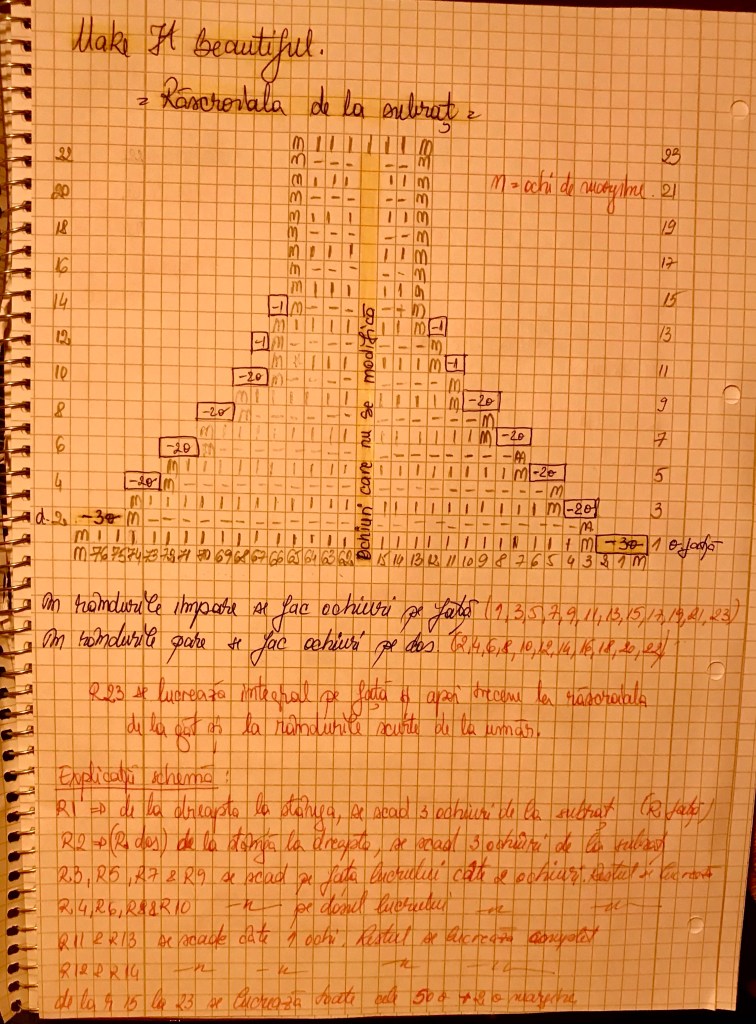 Make It Beautiful.
= Răscroiala de la subraț =
22 23
M = ochi de margine.
20 21
18 19
16 17
14 -1 15
12 -1 -1 13
10 -20 -1 11
8 -20 -20 9
6 -20 -20 7
4 -20 -20 5
d. 2 -30 -20 3
Ochiuri care nu se modifică
-30 1 o-față
M 76 75 74 73 72 71 70 69 68 67 66 65 64 63 62 15 14 13 12 11 10 9 8 7 6 5 4 3 2 1 M
În rândurile impare se fac ochiuri pe față (1,3,5,7,9,11,13,15,17,19,21,23)
În rândurile pare se fac ochiuri pe dos. (2,4,6,8,10,12,14,16,18,20,22)
R23 se lucrează integral pe față și apoi trecem la răscroiala
de la gât și la rândurile scurte de la umăr.
Explicații schemă:
R1 => de la dreapta la stânga, se scad 3 ochiuri de la subraț (R față)
R2 => (R dos) de la stânga la dreapta, se scad 3 ochiuri de la subraț
R3, R5, R7 & R9 se scad pe fața lucrului câte 2 ochiuri. Restul se lucrează
R4, R6, R8 & R10 —"— pe dosul lucrului —"— —"—
R11 & R13 se scade câte 1 ochi. Restul se lucrează complet
R12 & R14 —"— —"— —"— —"—
de la R 15 la 23 se lucrează toate cele 50 o + 2 o margine